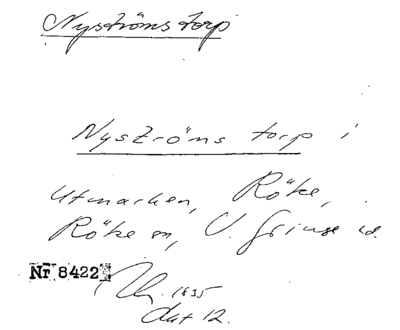 Nyströms torp
Nyströms torp i
Utmarken, Röke,
Röke sn, V. Göinge hd.
Nr 8422
1835
dat 12.